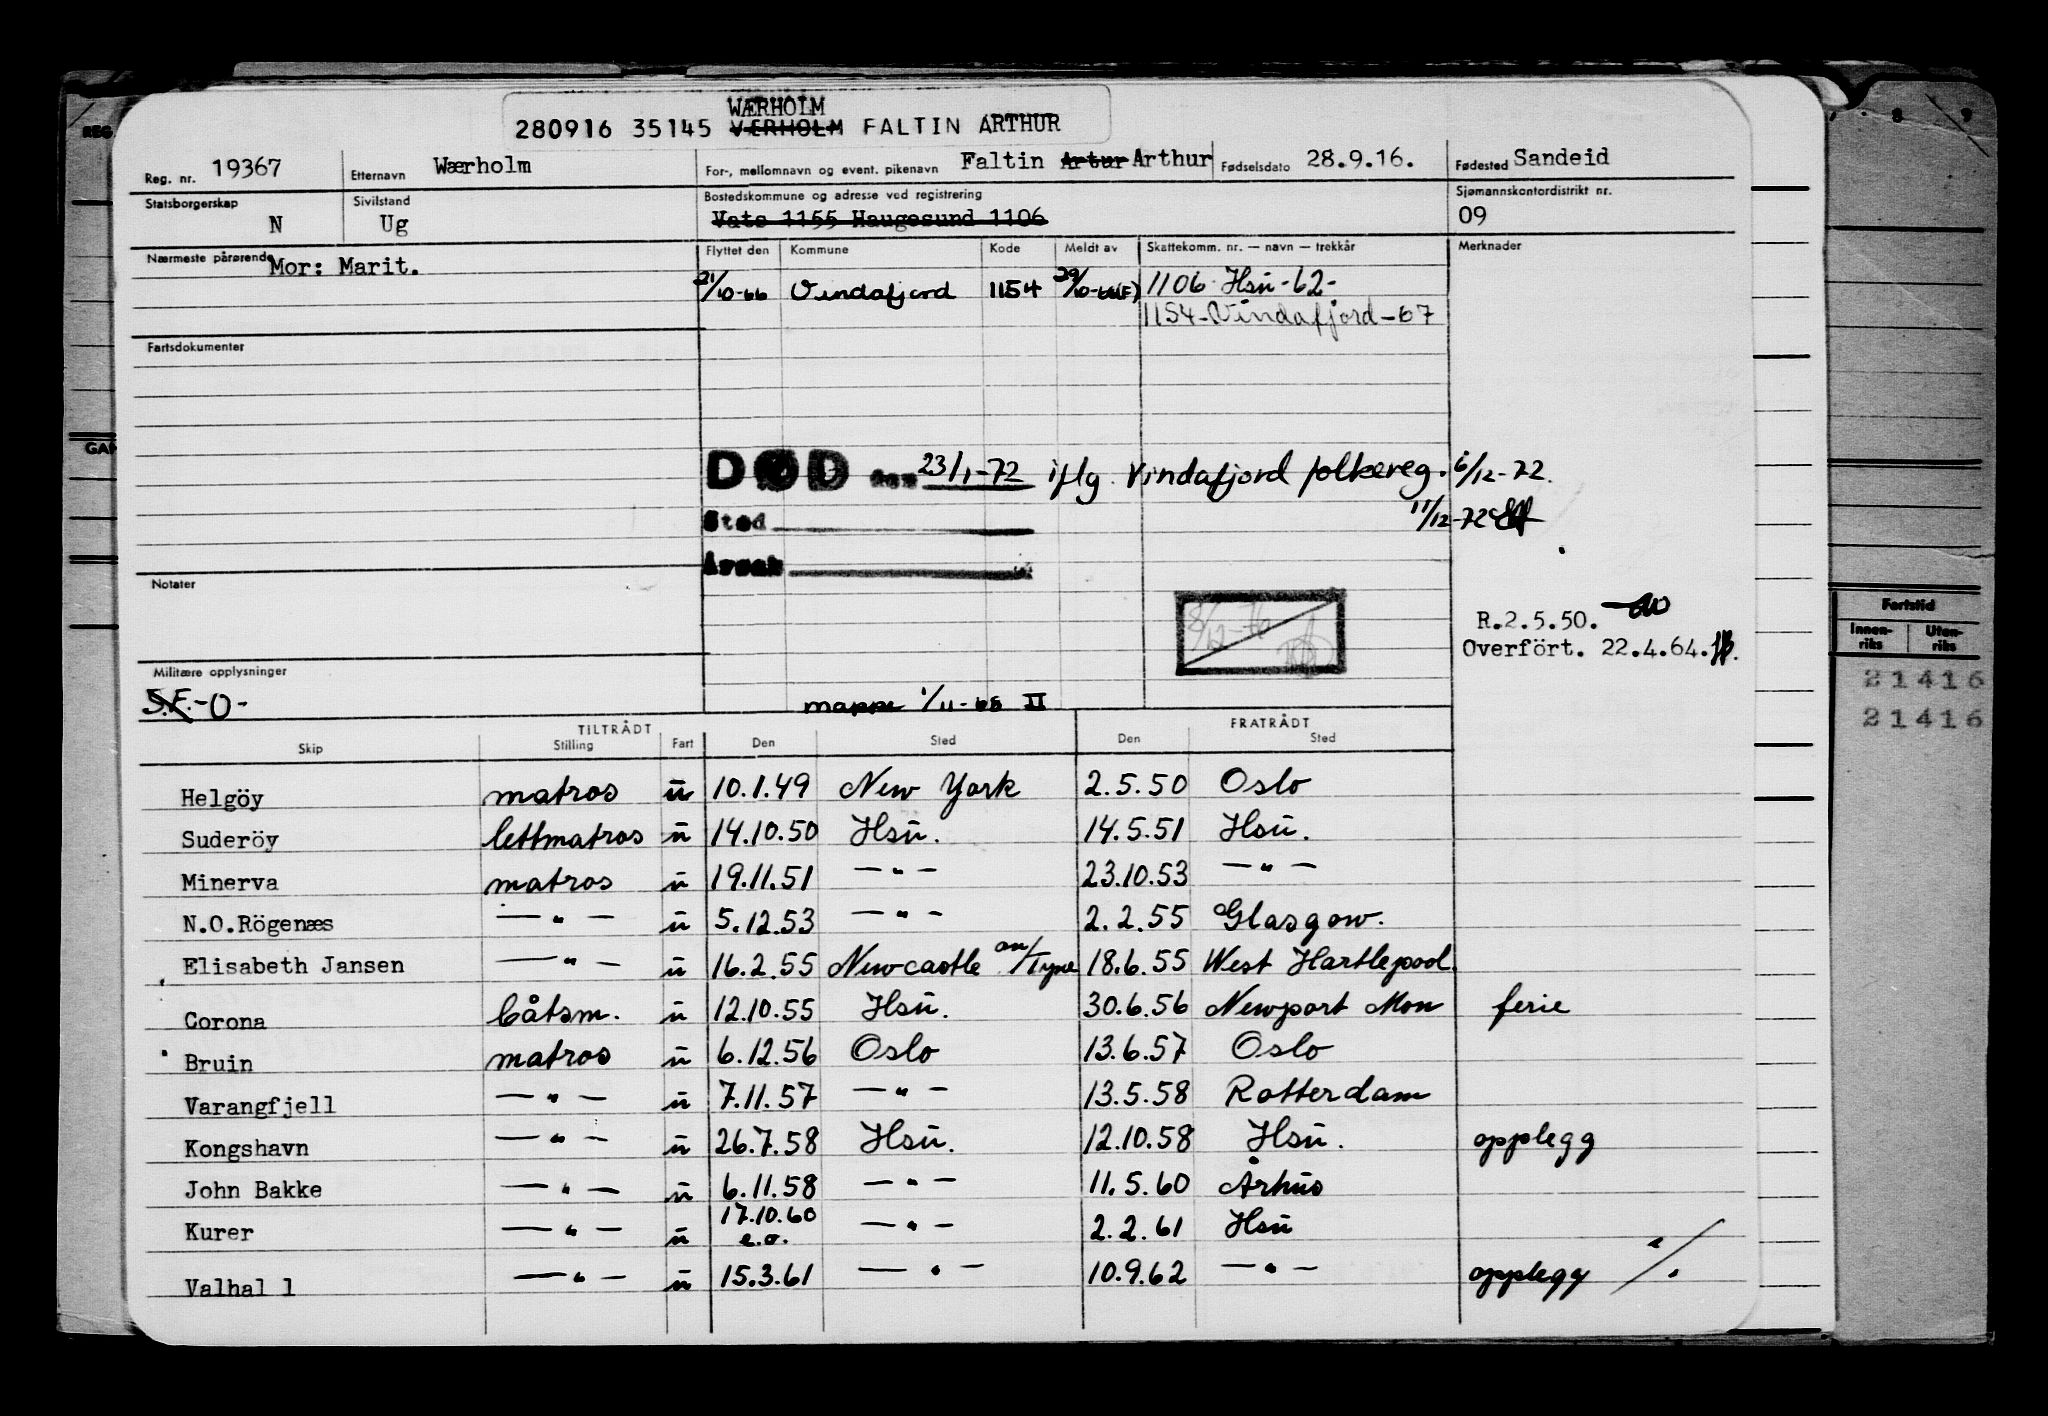 WÆRHOLM
280916 35145 VÆRHOLM FALTIN ARTHUR
Reg. nr. 19367 Etternavn Wærholm For-, mellomnavn og event. pikenavn Faltin Artur Arthur Fødselsdato 28.9.16. Fødested Sandeid
Statsborgerskap N Sivilstand Ug Bostedskommune og adresse ved registrering Vats 1155 Haugesund 1106 Sjømannskontordistrikt nr. 09
Nærmeste pårørende Mor: Marit. Flyttet den Kommune Kode Meldt av Skattekomm. nr. — navn — trekkår Merknader
21/10-66 Vindafjord 1154 29/10-66(F) 1106 Hsu -62-
1154-Vindafjord-67
Fartsdokumenter
DØD den 23/1-72 iflg Vindafjord folkereg. 6/12-72.
11/12-72
Sted
Årsak
Notater
8/12-76
R.2.5.50.
Overfört. 22.4.64.
Militære opplysninger
S.F. -O-
mappe 1/11-68 II
TILTRÅDT FRATRÅDT
Skip Stilling Fart Den Sted Den Sted
Helgöy matros u 10.1.49 New York 2.5.50 Oslo
Suderöy lettmatros u 14.10.50 Hsu. 14.5.51 Hsu.
Minerva matros u 19.11.51 — " — 23.10.53 — " —
N.O.Rögenæs — " — u 5.12.53 — " — 2.2.55 Glasgow.
Elisabeth Jansen — " — u 16.2.55 Newcastle on/Tyne 18.6.55 West Hartlepool.
Corona båtsm. u 12.10.55 Hsu. 30.6.56 Newport Mon ferie
Bruin matros u 6.12.56 Oslo 13.6.57 Oslo
Varangfjell — " — u 7.11.57 — " — 13.5.58 Rotterdam
Kongshavn — " — u 26.7.58 Hsu. 12.10.58 Hsu. opplegg
John Bakke — " — u 6.11.58 — " — 11.5.60 Århus
Kurer — " — u 17.10.60 e.o. — " — 2.2.61 Hsu
Valhal l — " — u 15.3.61 — " — 10.9.62 — " — opplegg
REG
GAN
8 9
Fartstid
Innen-riks Uten-riks
21416
21416